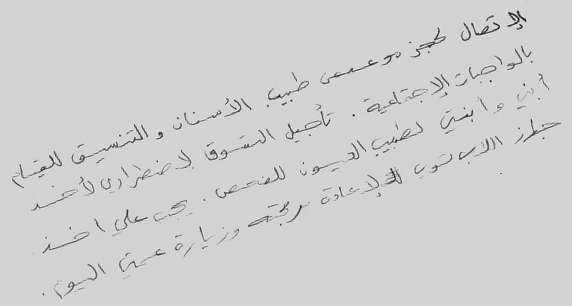 الإتصال لحجز موعد مع طبيب الأسنان والتنسيق للقيام
بالواجبات الإجتماعية. تأجيل التسوق لاضطراري لأخذ
أبني وابنتي لطبيب العيون للفحص. يجب علي اخذ
جهاز اللاب توب لإعادة برمجته وزيارة عمتي اليوم.